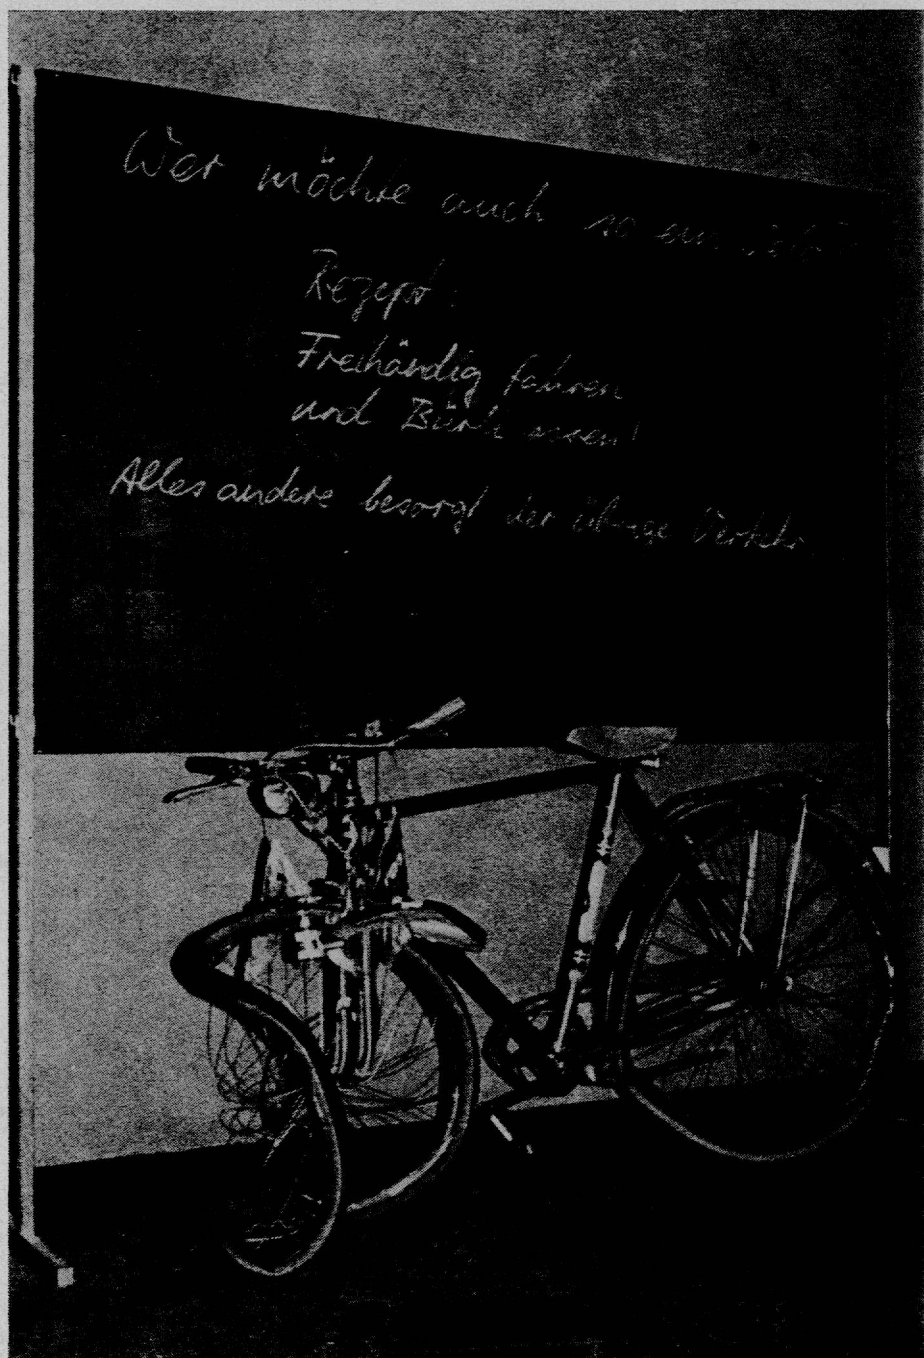 Wer möchte auch so ein
Rezept:
Freihändig fahren
und Bürli essen!
Alles andere besorgt der übrige Verkehr